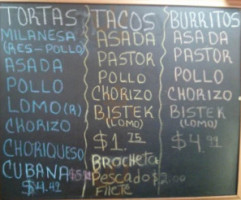 TORTAS
MILANESA
(RES-POLLO)
ASADA
POLLO
LOMO(R)
CHORIZO
CHORIQUESO
CUBANA
TACOS
ASADA
PASTOR
POLLO
CHORIZO
BISTEK
(LOMO)
$1.75
BROCHETA
Pescado $2.00
Filete
BURRITOS
ASADA
PASTOR
POLLO
CHORIZO
BISTEK
(LOMO)